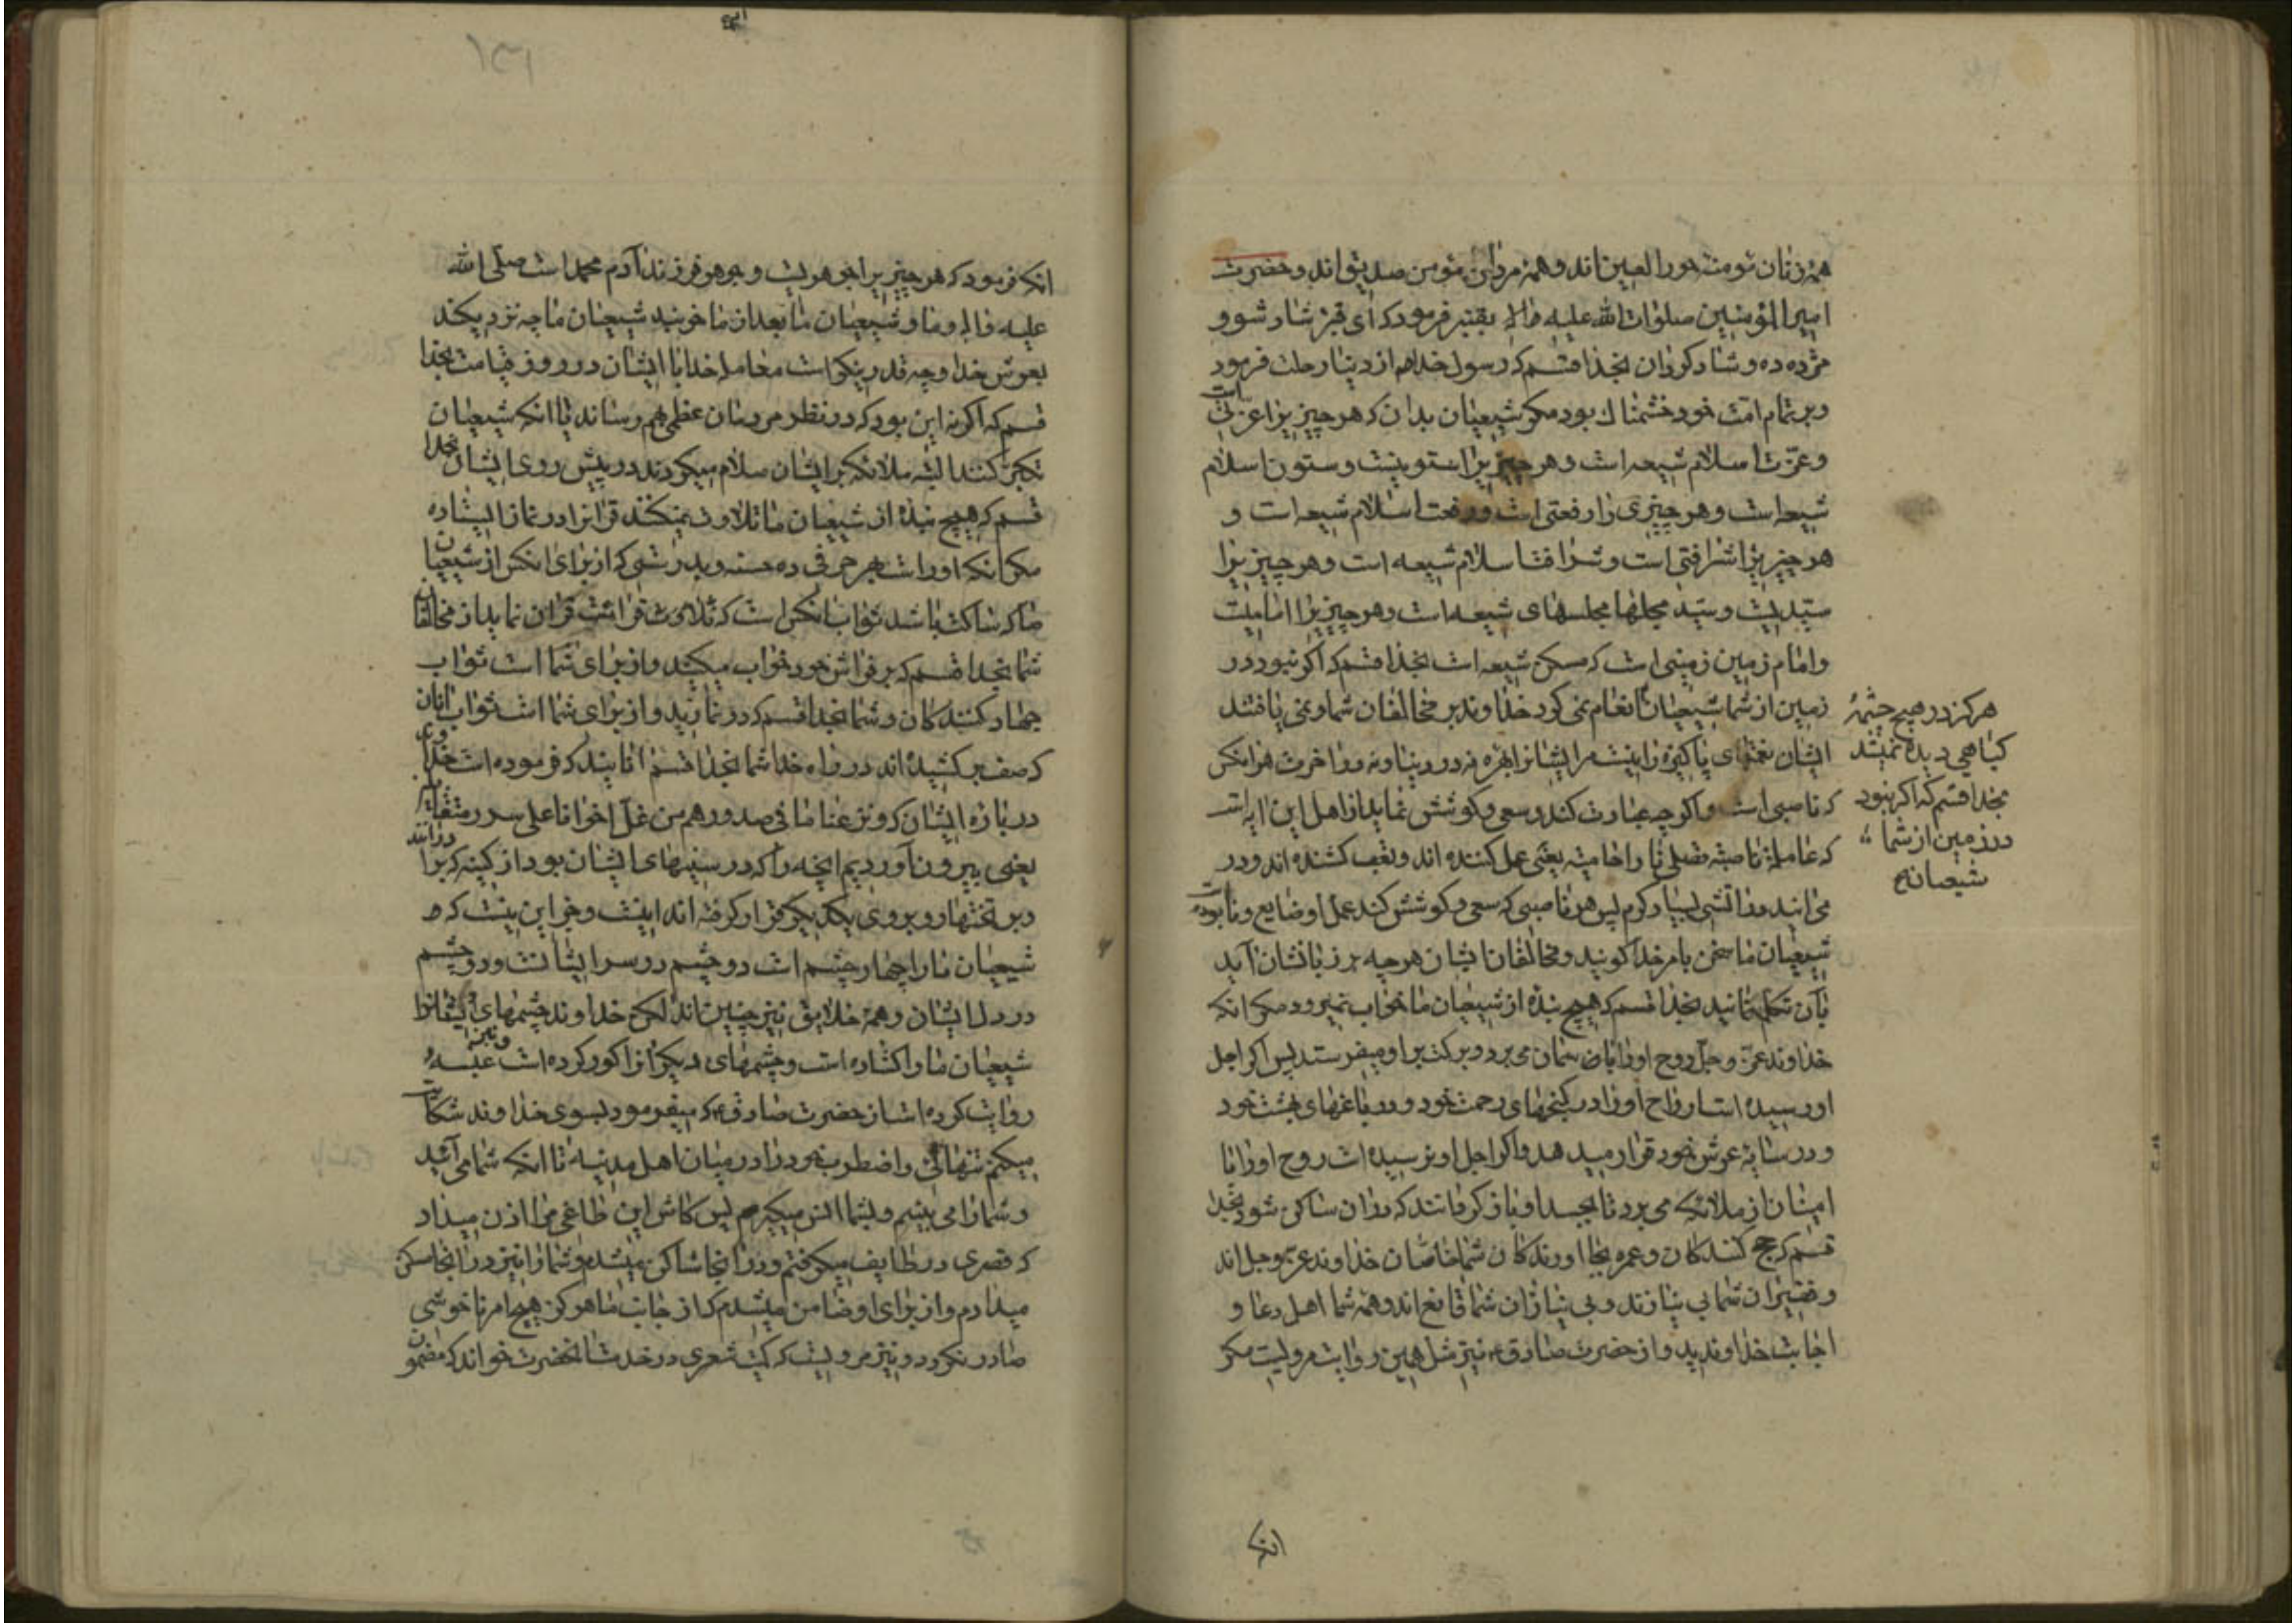 همهٔ زنان مؤمنه حور العین اند و همهٔ مردان مؤمن صدیق اند و حضرت
امیر المؤمنین صلوات الله علیه و اله بقنبر فرمود که ای قنبر شاد شو و
مژده ده و شاد کردان بخدا قسم که رسول خدا هم از دنیا رحلت فرمود
و بر تمام امّت خود خشمناك بود مکر شیعیان بدان که هر چیزیرا عزتی است
و عزّت اسلام شیعه است و هر چیزیرا ستونیست و ستون اسلام
شیعه است و هر چیزی را رفعتی است و رفعت اسلام شیعه است و
هر چیزیرا شرافتی است و شرافت اسلام شیعه است و هر چیزیرا
سیّدیست و سیّد مجلسها مجلسهای شیعه است و هر چیزیرا امامیست
و امام زمین زمینی است که مسکن شیعه است بخدا قسم که اکر نبود در
زمین از شما شیعیان انعام نمی کرد خداوند بر مخالفان شما و نمی یافتند
ایشان نعمتهای پاکیزه را نیست مر ایشانرا بهره نه در دنیا و نه در آخرت هر انکس
که ناصبی است و اکر چه عبادت کند و سعی و کوشش نماید از اهل این ایه است
که عاملة ناصبة تصلی نارا حامیة یعنی عمل کننده اند و تعب کشنده اند و در
می ایند در اتشی بسیار کرم پس هر ناصبی که سعی و کوشش کند عمل او ضایع و نابود است
شیعیان ما سخن بامر خدا کویند و مخالفان ایشان هر چه بر زبانشان آید
بآن تکلم نمایند بخدا قسم که هیچ بندهٔ از شیعیان ما بخواب نمیرود مکر انکه
خداوند عزّ و جل روح او را باسمان می برد و برکت بر او میفرستد پس اکر اجل
او رسیده است ارواح او را در کنجهای رحمت خود و در باغهای بهشت خود
و در سایهٔ عرش خود قرار میدهد و اکر اجل او نرسیده است روح او را با
امینان از ملائکه می برد تا بجسد او باز کردانند که در ان ساکن شود بخدا
قسم که حج کنندکان و عمره بجا اورندکان شما خاصان خداوند عزّ و جل اند
و فقیران شما بی نیازند و بی نیازان شما قانع اند و همه شما اهل دعا و
اجابت خداوندید و از حضرت صادق نیز مثل همین روایت مرویست مکر
هرکز در هیچ چشمهٔ
کیاهی دیده نمیشد
بخدا قسم که اکر نبود
در زمین از شما
شیعیان
انکه
١٣١
انکه فرمود که هر چیزیرا جوهریست و جوهر فرزند آدم محمد است صلی الله
علیه و اله و ما و شیعیان ما بعد از ما خوشید شیعیان ما چه نزدیکند
بعرش خدا و چه قدر نیکو است معامله خدا با ایشان در روز قیامت بخدا
قسم که اکر نه این بود که در نظر مردمان عظیم هم رساند یا انکه شیعیان
تکبر کنند البته ملائکه بر ایشان سلام میکردند در پیش روی ایشان بخدا
قسم که هیچ بندهٔ از شیعیان ما تلاوت نمیکند قرانرا در نماز ایستاده
مکر انکه او راست بهر حرفی ده حسنه و بدرستی که از برای انکس از شیعیان
ما که ساکت باشد ثواب انکس است که تلاوت و قرائت قران نماید از مخالفان
شما بخدا قسم که بر فراش خود خواب میکنید و از برای شما است ثواب
جهاد کنندکان و شما بخدا قسم که در نمازید و از برای شما است ثواب انان
که صف بر کشیده اند در راه خدا شما بخدا قسم انانید که فرموده است خدا
در بارهٔ ایشان که و نزعنا ما فی صدورهم من غل اخوانا علی سرر متقابلین
یعنی بیرون آوردیم انچه را که در سینهای ایشان بود از کینه که برا
و بر تختها روبروی یکدیکر قرار کرفته اند اینست و جز این نیست که
شیعیان ما را چهار چشم است دو چشم در سر ایشانست و دو چشم
در دل ایشان و همهٔ خلایق نیز چنین اند لکن خداوند چشمهای
شیعیان ما را کشاده است و چشمهای دیکرانرا کور کرده است و نیز عنبسه
روایت کرده است از حضرت صادق که میفرمود بسوی خداوند شکایت
میکنم تنهائی و اضطراب خود را در میان اهل مدینه تا انکه شما می آئید
و شما را می بینم و بشما انس میکیرم پس کاش این طاغی مرا اذن میداد
که قصری در طایف میکرفتم و در انجا ساکن میشدم و شما را نیز در انجا سکنی
میدادم و از برای او ضامن میشدم که از جانب ما هرکز هیچ امر ناخوشی
صادر نکردد و نیز مرویست که کمیت شعری در خدمت انحضرت خواند که مضمون